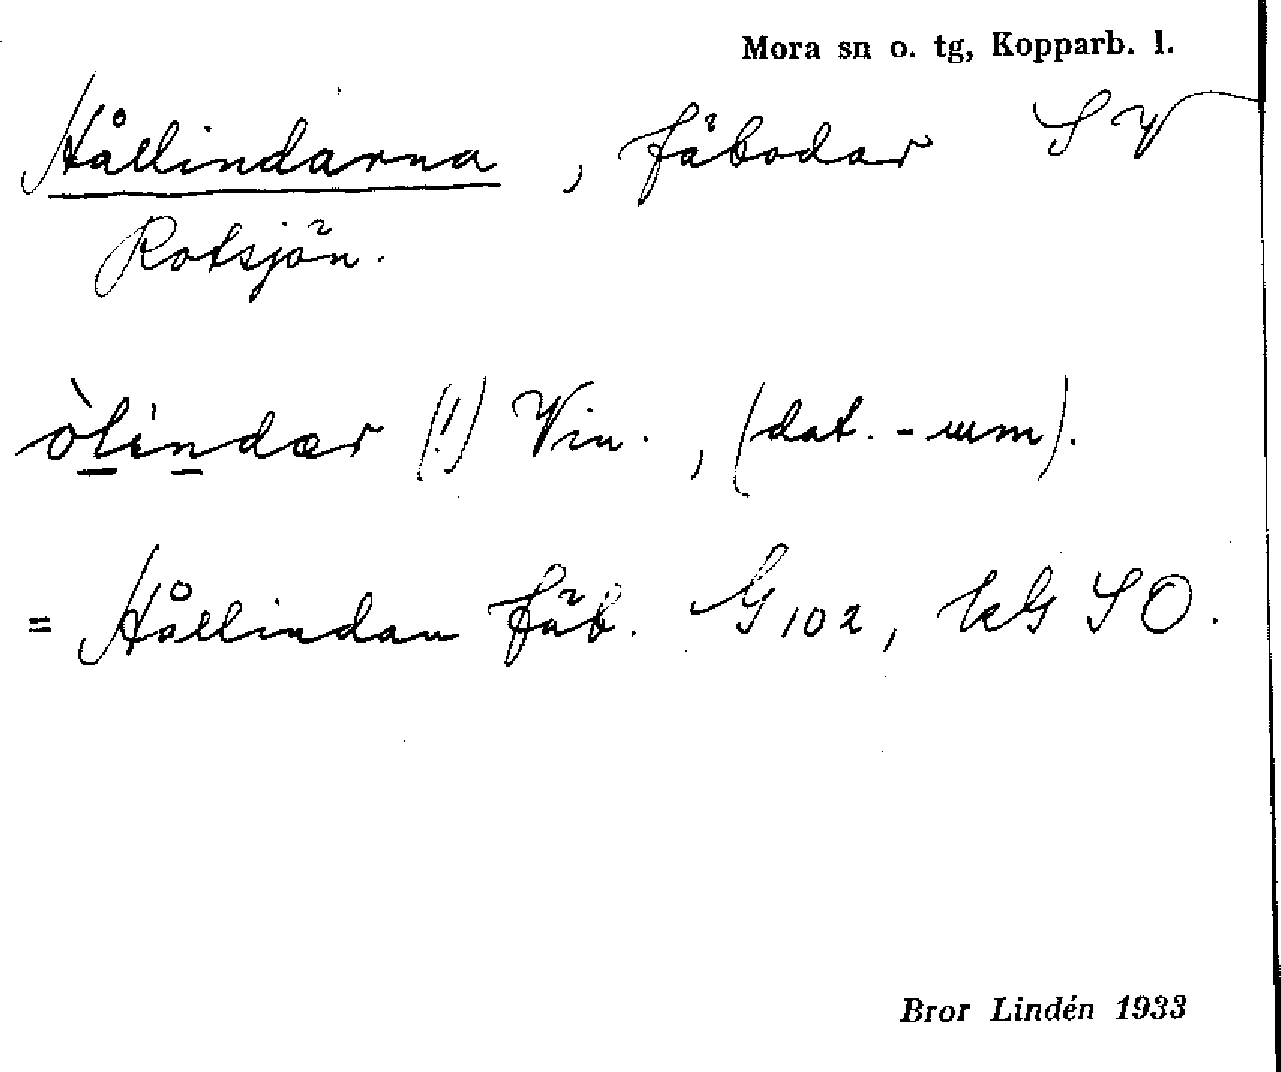 Mora sn o. tg, Kopparb. l.
Hållindarna, fäbodar SV
Rotsjön.
òlindær (!) Vin., (dat. -ɯm).
= Hållindan fäb. G 102, kG SO.
Bror Lindén 1933